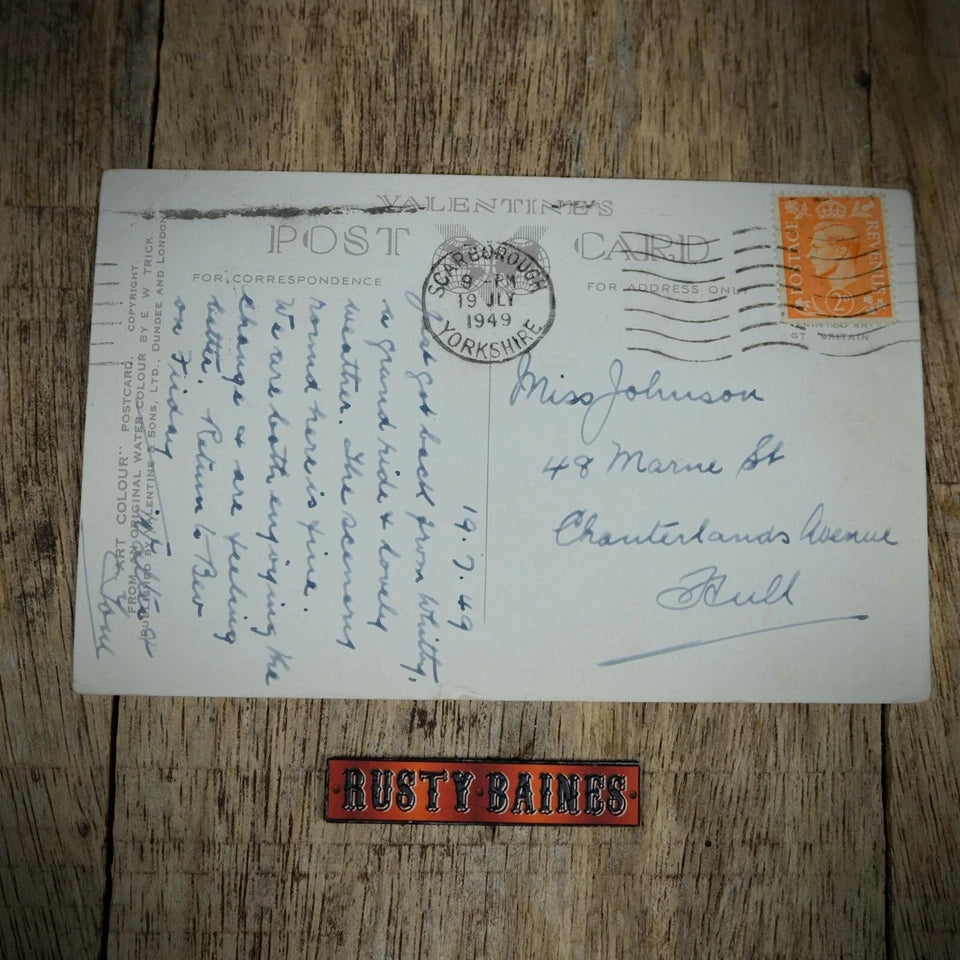 VALENTINE'S
POST CARD
FOR CORRESPONDENCE
FOR ADDRESS ONLY
SCARBOROUGH
9 - PM
19 JLY
1949
YORKSHIRE
POSTAGE
REVENUE
2D
GT BRITAIN
19.7.49
Just got back from Whitby,
a grand ride & lovely
weather. The scenery
round here is fine.
We are both enjoying the
change & are feeling
better. Return to Bev
on Friday
Miss Johnson
48 Marne St
Chanterlands Avenue
Hull
"ART COLOUR" POSTCARD. COPYRIGHT.
FROM AN ORIGINAL WATER COLOUR BY E. W. TRICK
PUBLISHED BY VALENTINE & SONS, LTD., DUNDEE AND LONDON
RUSTY BAINES